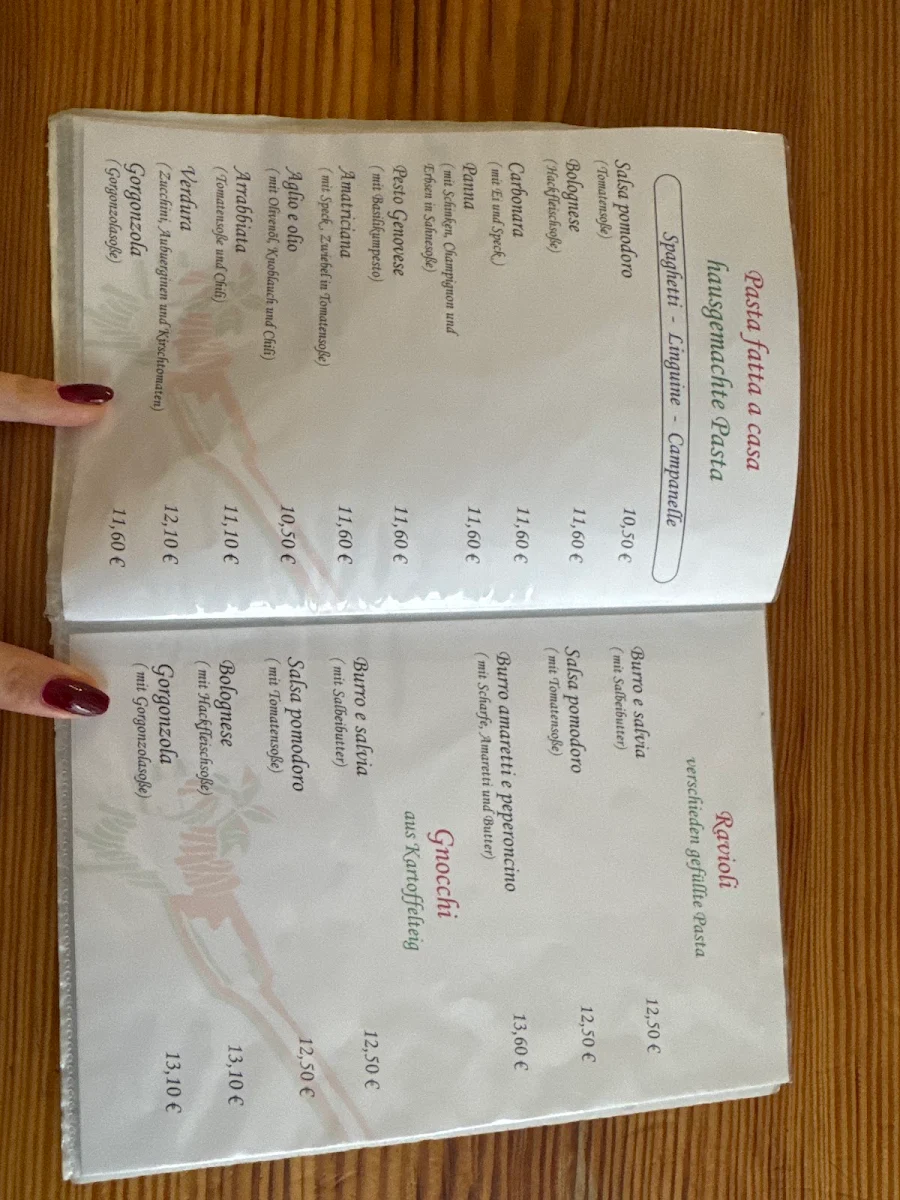 Pasta fatta a casa
hausgemachte Pasta
Spaghetti - Linguine - Campanelle
Salsa pomodoro 10,50 €
(Tomatensoße)
Bolognese 11,60 €
(Hackfleischsoße)
Carbonara 11,60 €
( mit Ei und Speck )
Panna 11,60 €
( mit Schinken, Champignon und
Erbsen in Sahnesoße)
Pesto Genovese 11,60 €
( mit Basilikumpesto)
Amatriciana 11,60 €
( mit Speck , Zwiebel in Tomatensoße)
Aglio e olio 10,50 €
( mit Olivenöl, Knoblauch und Chili)
Arrabbiata 11,10 €
( Tomatensoße und Chili)
Verdura 12,10 €
( Zucchini, Aubuerginen und Kirschtomaten)
Gorgonzola 11,60 €
( Gorgonzolasoße)
Ravioli
verschieden gefüllte Pasta
Burro e salvia 12,50 €
( mit Salbeibutter)
Salsa pomodoro 12,50 €
( mit Tomatensoße)
Burro amaretti e peperoncino 13,60 €
( mit Scharfe, Amaretti und Butter)
Gnocchi
aus Kartoffelteig
Burro e salvia 12,50 €
( mit Salbeibutter)
Salsa pomodoro 12,50 €
( mit Tomatensoße)
Bolognese 13,10 €
( mit Hackfleischsoße)
Gorgonzola 13,10 €
( mit Gorgonzolasoße)